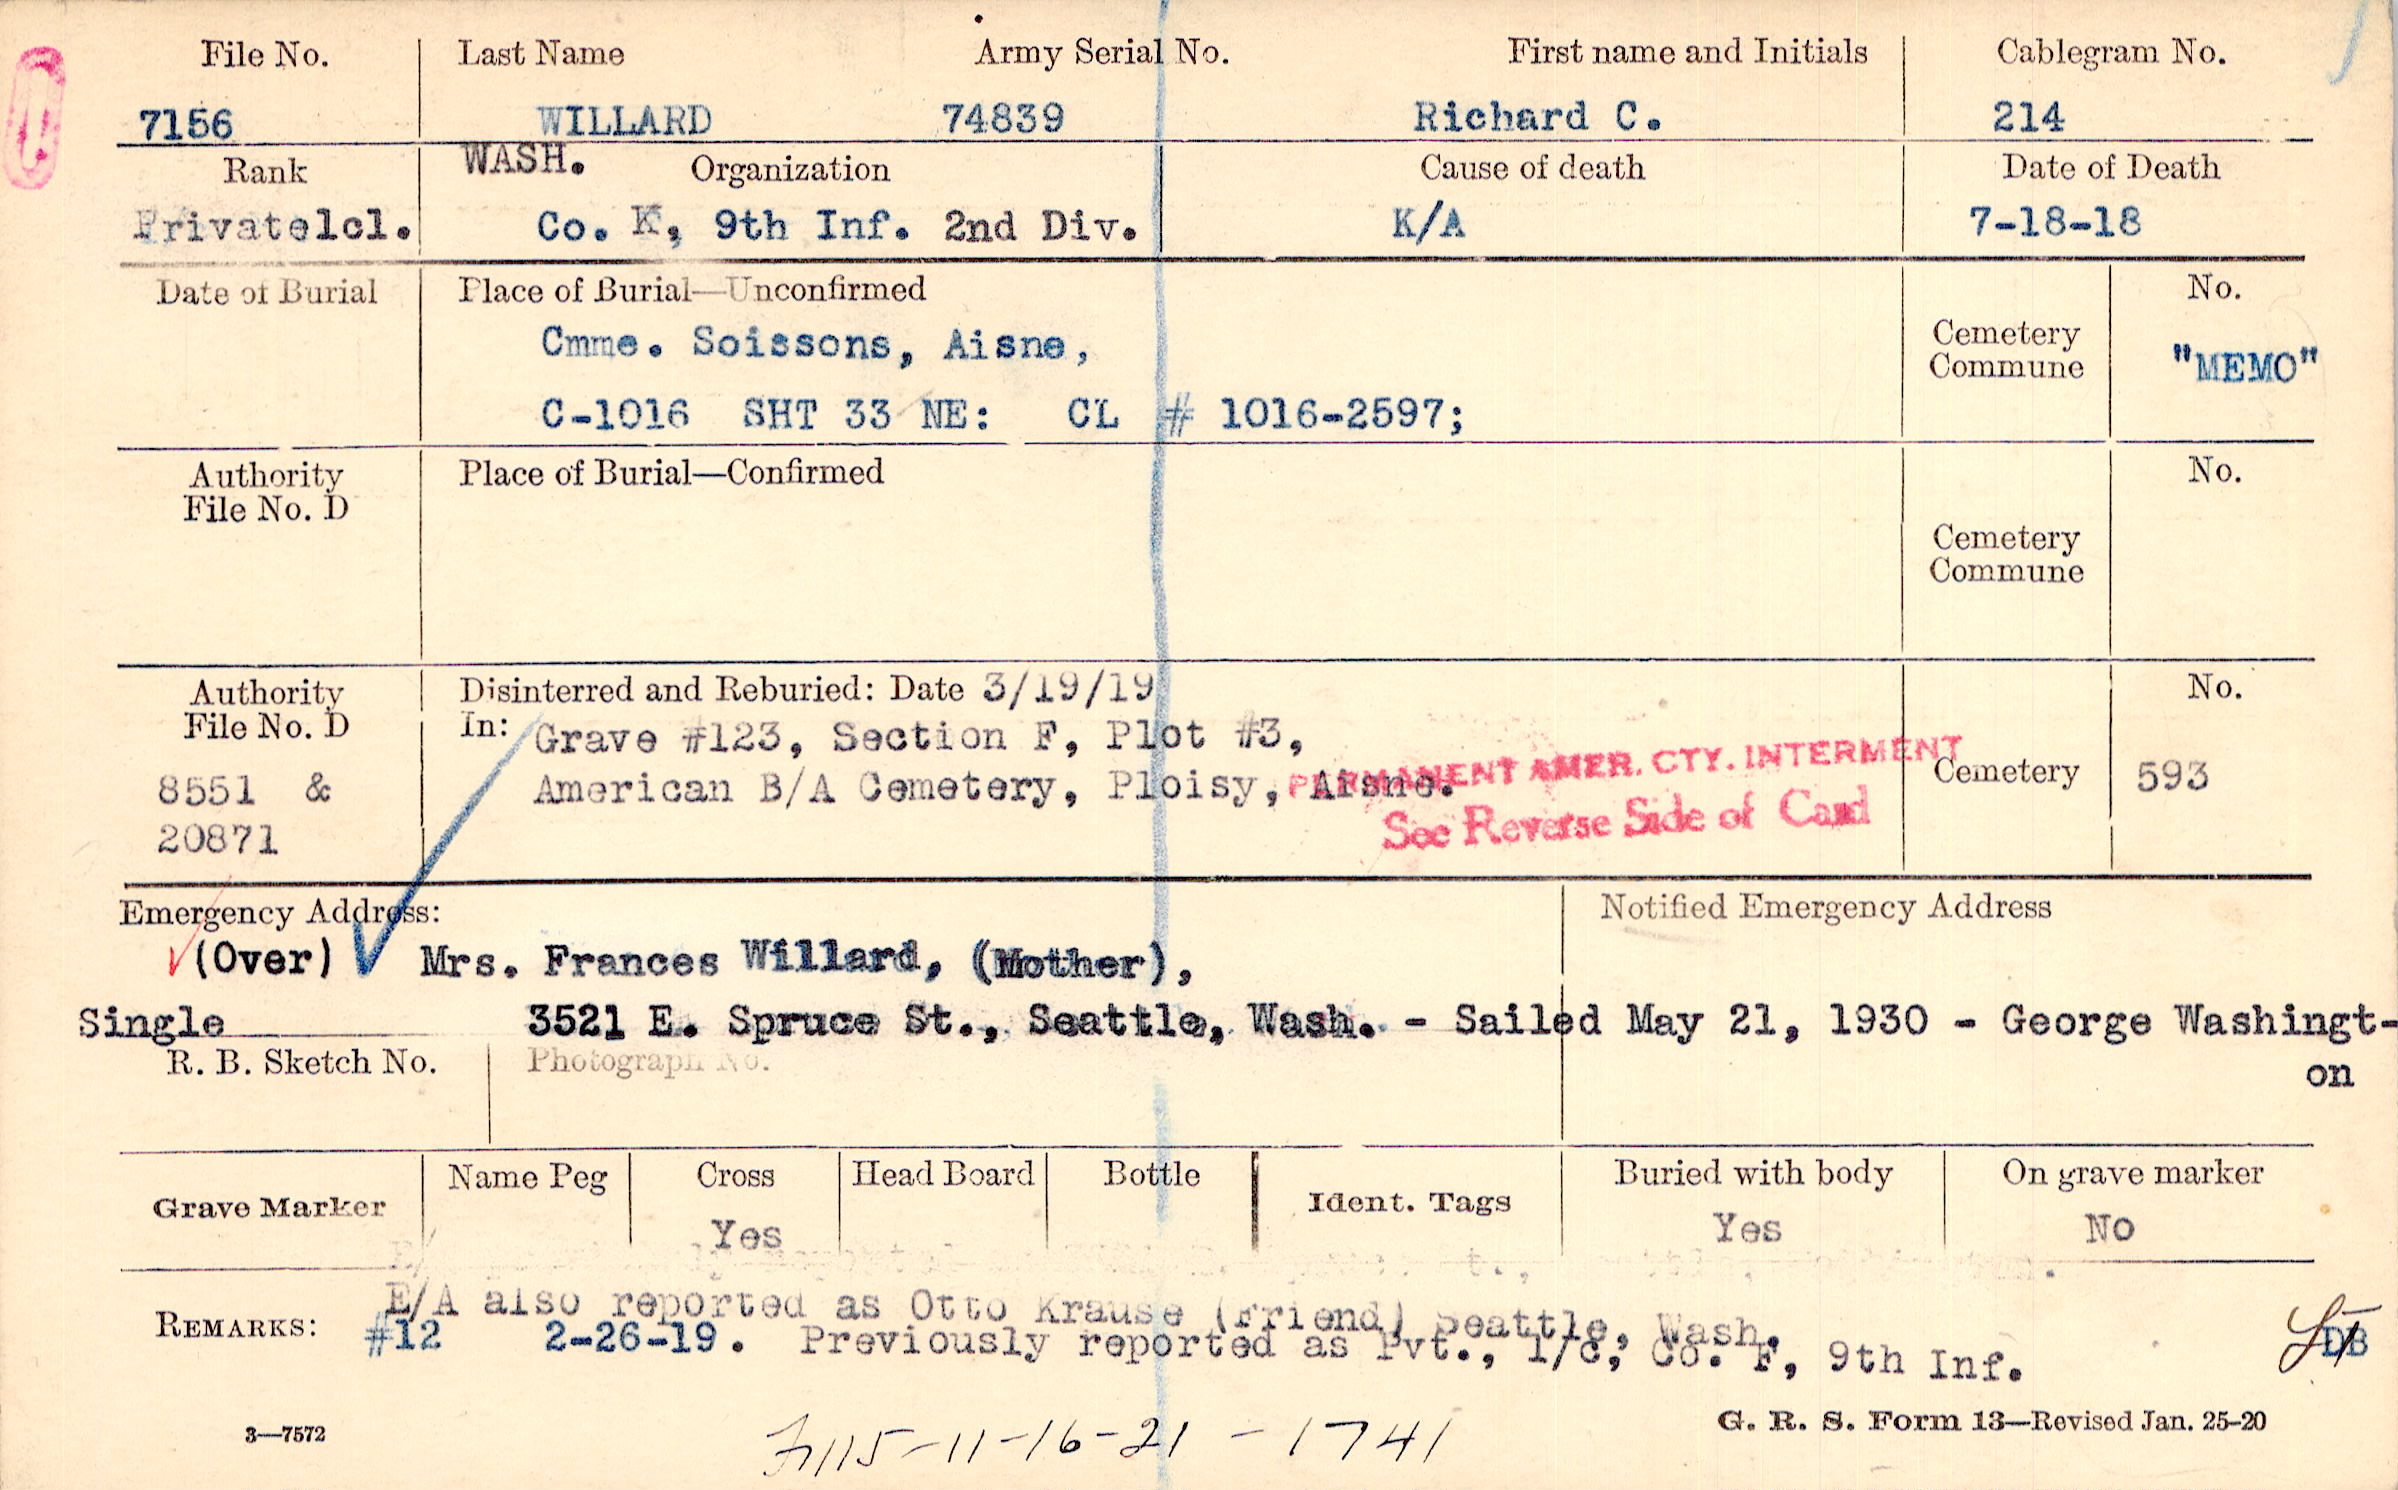 File No. Last Name Army Serial No. First name and Initials Cablegram No.
7156 WILLARD 74839 Richard C. 214
Rank WASH. Organization Cause of death Date of Death
Private1cl. Co. K, 9th Inf. 2nd Div. K/A 7-18-18
Date of Burial Place of Burial—Unconfirmed No.
Cmme. Soissons, Aisne, Cemetery
Commune "MEMO"
C-1016 SHT 33 NE: CL # 1016-2597;
Authority Place of Burial—Confirmed No.
File No. D
Cemetery
Commune
Authority Disinterred and Reburied: Date 3/19/19 No.
File No. D In: Grave #123, Section F, Plot #3,
PERMANENT AMER. CTY. INTERMENT
8551 & American B/A Cemetery, Ploisy, Aisne. Cemetery 593
See Reverse Side of Card
20871
Emergency Address: Notified Emergency Address
(Over) Mrs. Frances Willard, (Mother),
Single 3521 E. Spruce St., Seattle, Wash. - Sailed May 21, 1930 - George Washingt-
on
R. B. Sketch No. Photograph No.
Grave Marker Name Peg Cross Head Board Bottle Ident. Tags Buried with body On grave marker
Yes Yes No
E/A also reported as Otto Krause (Friend) Seattle, Wash.
REMARKS: #12 2-26-19. Previously reported as Pvt., 1/c, Co. F, 9th Inf. DB
3—7572 G. R. S. Form 13—Revised Jan. 25-20
11-16-21 - 1741